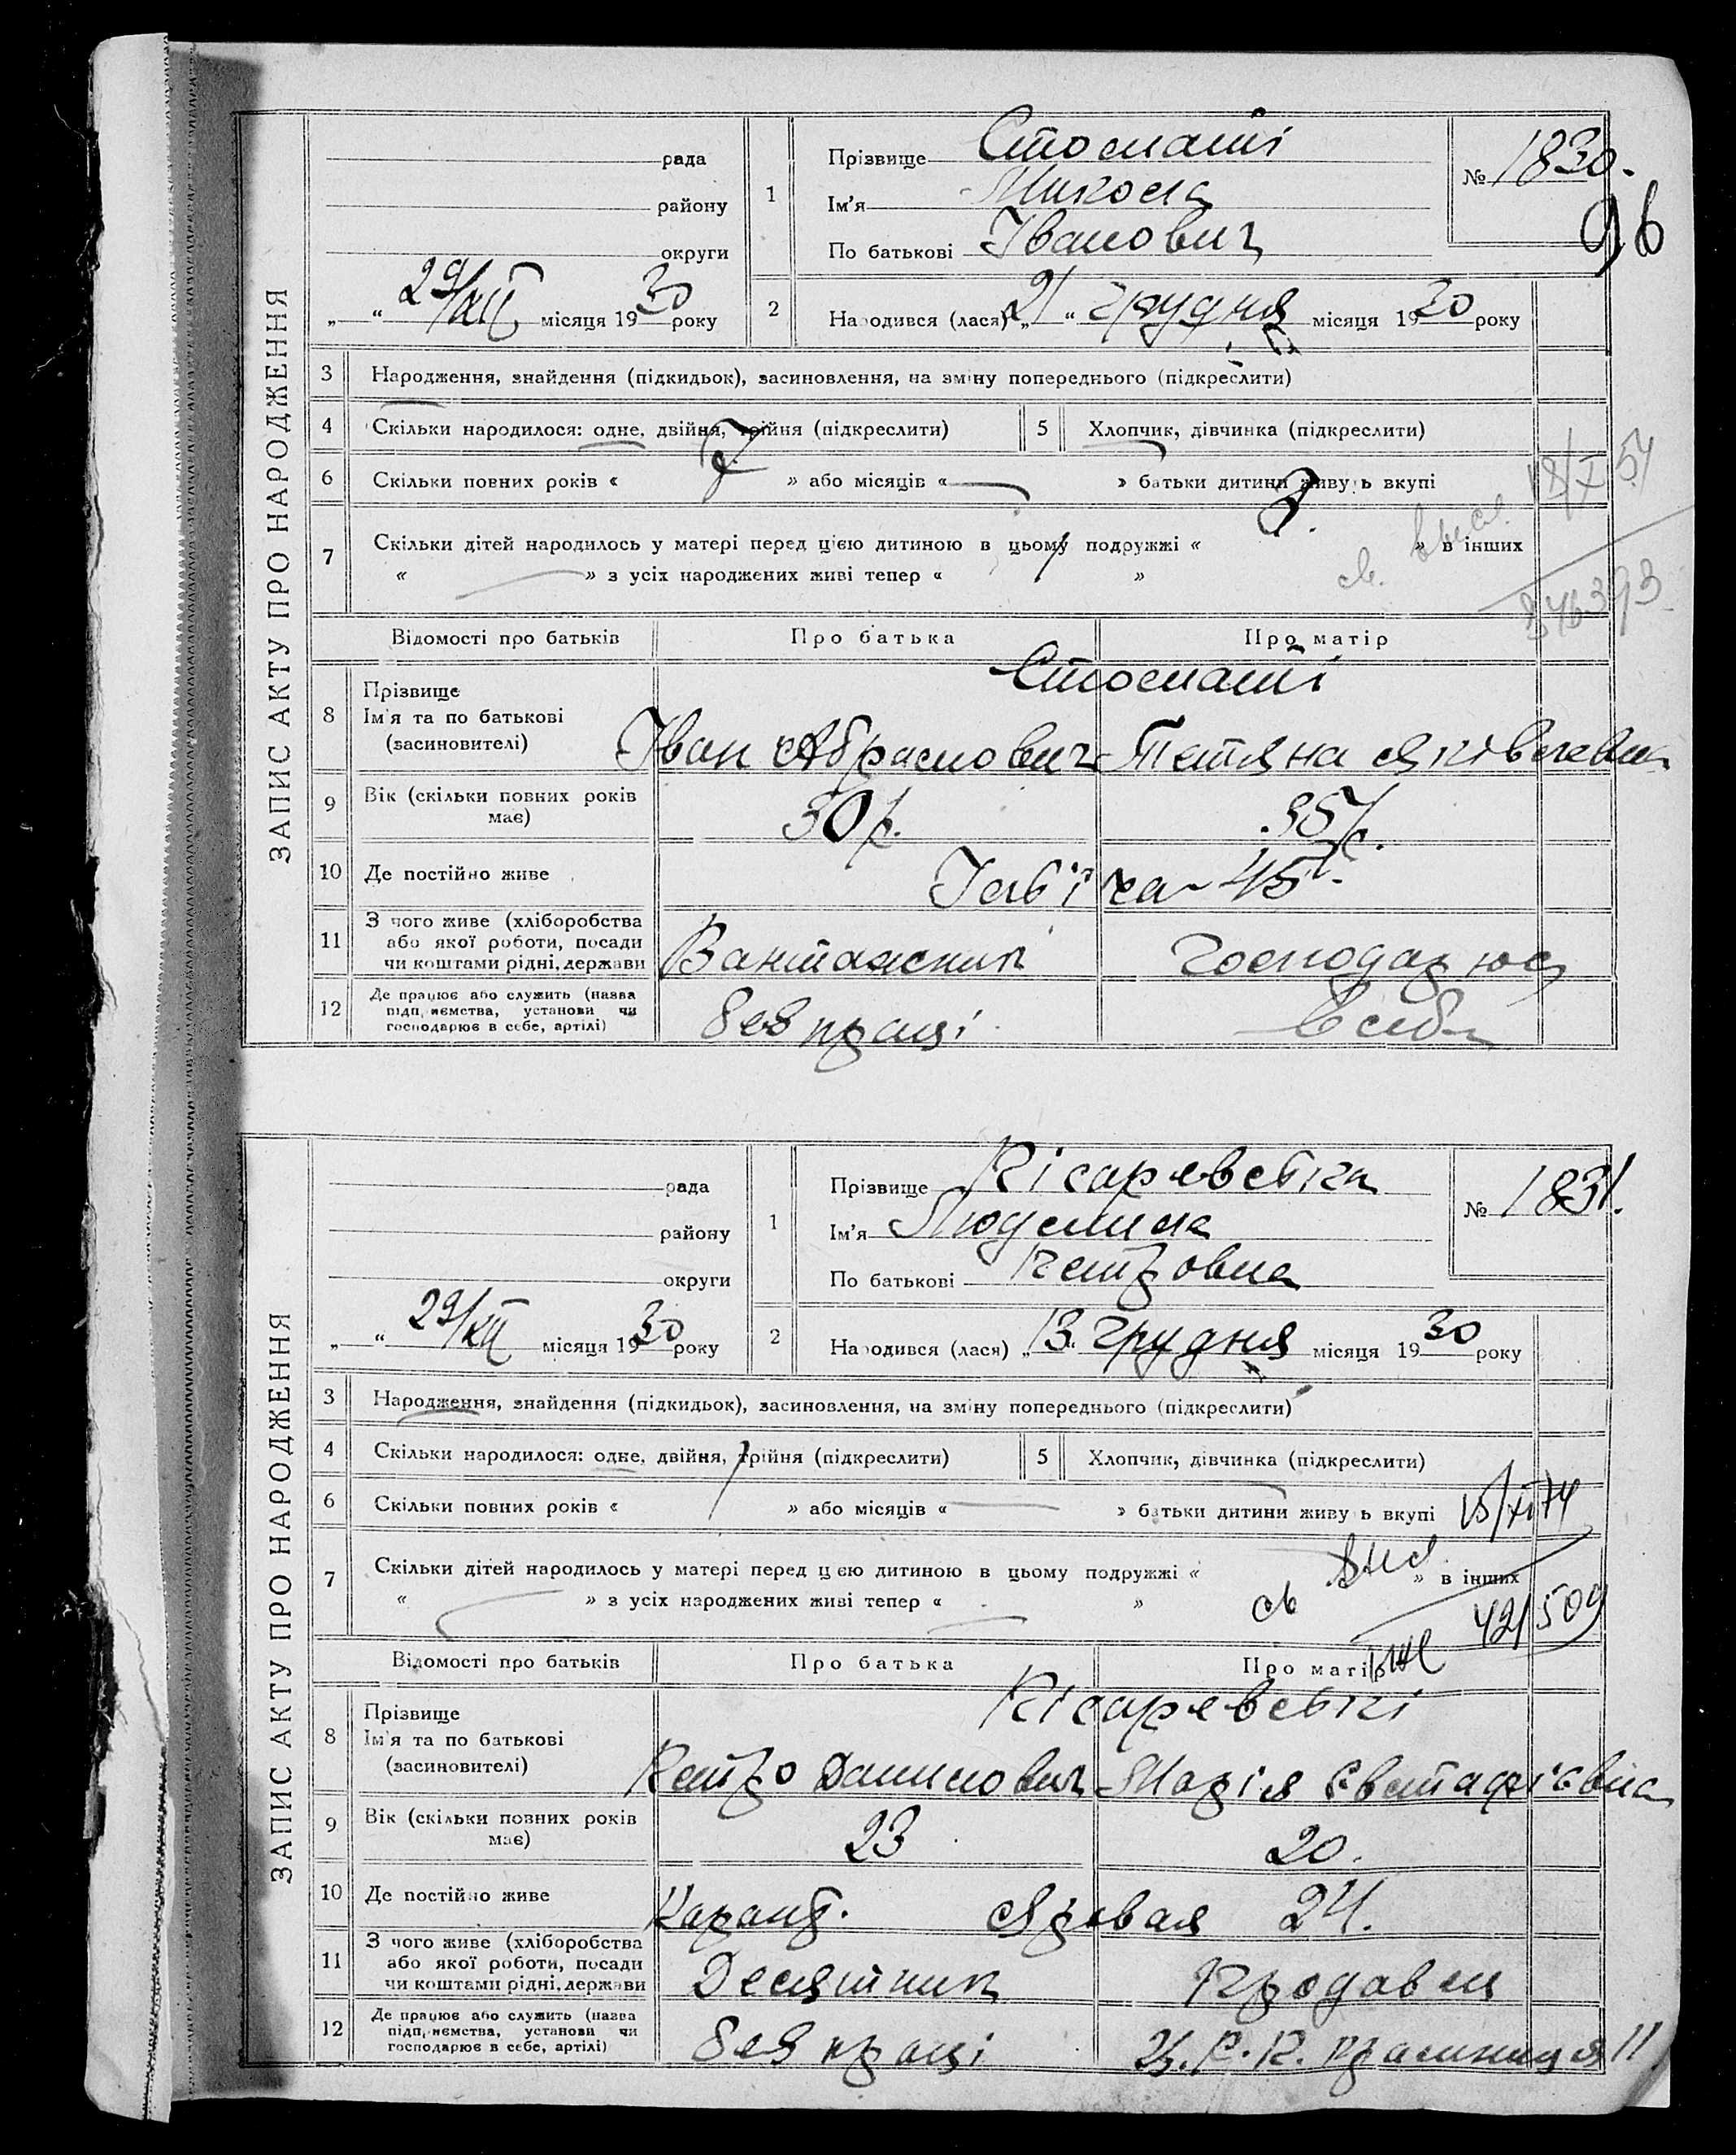 ЗАПИС АКТУ ПРО НАРОДЖЕННЯ
рада
району
округи
29/XII місяця 1930 року
1
Прізвище
Ім'я Микола
По батькові Іванович
№ 1830.
96
2
Народився (лася) „21“ грудня місяця 1930 року
3 Народження, знайдення (підкидьок), засиновлення, на зміну попереднього (підкреслити)
4 Скільки народилося: одне, двійня, трійня (підкреслити)
5 Хлопчик, дівчинка (підкреслити)
6 Скільки повних років « » або місяців « » батьки дитини живуть вкупі
18/X 54
7 Скільки дітей народилось у матері перед цією дитиною в цьому подружжі « » в інших
« » з усіх народжених живі тепер « »
346393
Відомості про батьків
Про батька
Про матір
8 Прізвище
Ім'я та по батькові
(засиновителі)
Іван Абрамович Тетяна Яківлевна
9 Вік (скільки повних років має)
30 р.
35 р.
10 Де постійно живе
45
11 З чого живе (хліборобства або якої роботи, посади чи коштами рідні, держави
Вантажник
Господарює
12 Де працює або служить (назва підприємства, установи чи господарює в себе, артілі)
без праці
в себе
ЗАПИС АКТУ ПРО НАРОДЖЕННЯ
рада
району
округи
29/XII місяця 1930 року
1
Прізвище Кісаревська
Ім'я Людмила
По батькові Петровна
№ 1831.
2
Народився (лася) „13“ грудня місяця 1930 року
3 Народження, знайдення (підкидьок), засиновлення, на зміну попереднього (підкреслити)
4 Скільки народилося: одне, двійня, трійня (підкреслити)
5 Хлопчик, дівчинка (підкреслити)
6 Скільки повних років « 1 » або місяців « » батьки дитини живуть вкупі
15/XI 74
7 Скільки дітей народилось у матері перед цією дитиною в цьому подружжі « » в інших
« » з усіх народжених живі тепер « »
421509
Відомості про батьків
Про батька
Про матір
8 Прізвище
Ім'я та по батькові
(засиновителі)
Кісаревські
Петро Данилович Марія Євстафієвна
9 Вік (скільки повних років має)
23
20.
10 Де постійно живе
Карант. Яровая 24.
11 З чого живе (хліборобства або якої роботи, посади чи коштами рідні, держави
Десятник
Продавец
12 Де працює або служить (назва підприємства, установи чи господарює в себе, артілі)
без праці
Ц.Р.К. крамниця 11